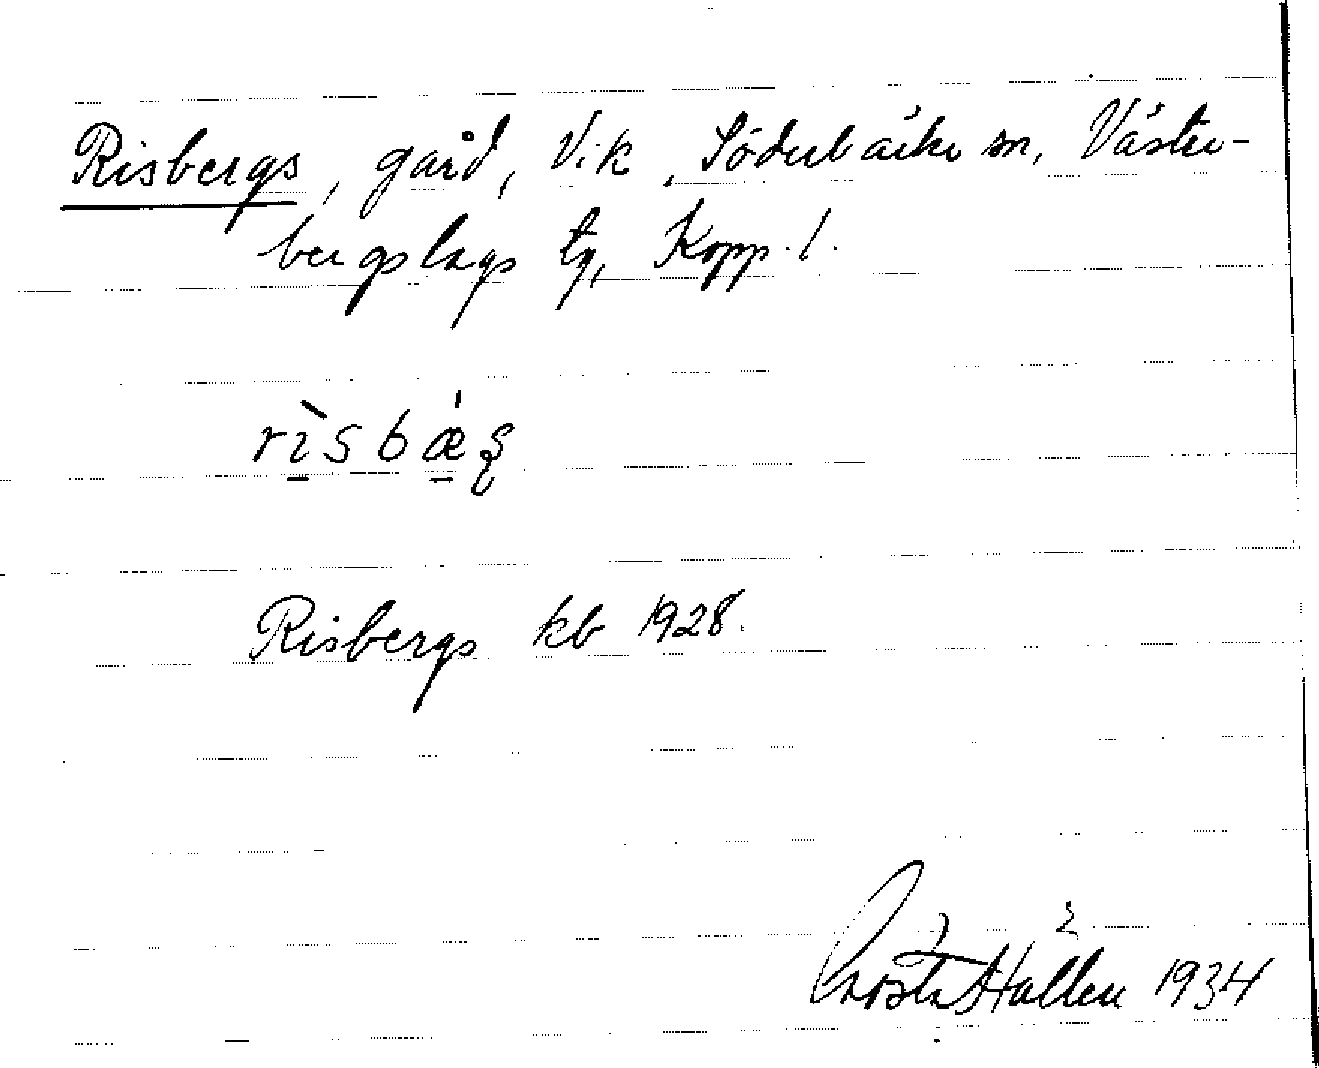 Risbergs, gård, Vik, Söderbärke sn, Väster-
bergslags tg, Kopp. l.
rìsbǽʂ
Risbergs kb 1928.
Gösta Hallén 1934